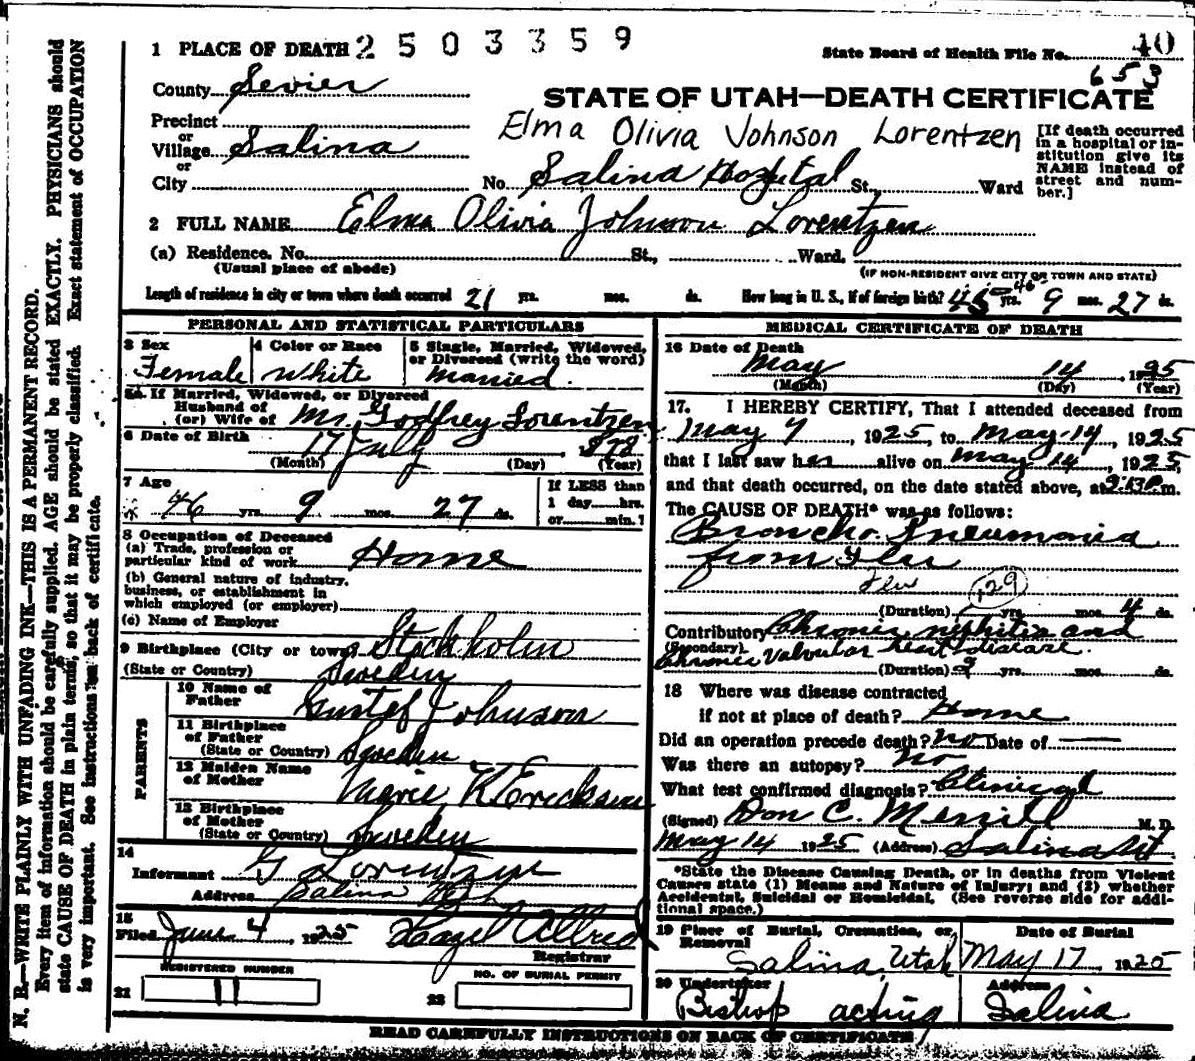 1 PLACE OF DEATH 2503359
State Board of Health File No. 40
653
County Sevier
STATE OF UTAH—DEATH CERTIFICATE
Precinct
or
Village Salina
or
City
Elma Olivia Johnson Lorentzen
No. Salina Hospital St., Ward
[If death occurred
in a hospital or in-
stitution give its
NAME instead of
street and num-
ber.]
2 FULL NAME Elma Olivia Johnson Lorentzen
(a) Residence. No. St., Ward.
(Usual place of abode)
(IF NON-RESIDENT GIVE CITY OR TOWN AND STATE)
Length of residence in city or town where death occurred 21 yrs. mos. ds.
How long in U. S., if of foreign birth? 45 46 yrs. 9 mos. 27 ds.
PERSONAL AND STATISTICAL PARTICULARS
3 Sex
Female
4 Color or Race
White
5 Single, Married, Widowed,
or Divorced (write the word)
Married.
5a If Married, Widowed, or Divorced
Husband of
(or) Wife of Mr. Godfrey Lorentzen
6 Date of Birth 17 July, 878
(Month) (Day) (Year)
7 Age
46 yrs. 9 mos. 27 ds.
If LESS than
1 day hrs.
or min.?
8 Occupation of Deceased
(a) Trade, profession or
particular kind of work Home
(b) General nature of industry,
business, or establishment in
which employed (or employer)
(c) Name of Employer
9 Birthplace (City or town) Stockholm
(State or Country) Sweden
PARENTS
10 Name of
Father Gustef Johnson
11 Birthplace
of Father
(State or Country) Sweden
12 Maiden Name
of Mother Marie K Ericksen
13 Birthplace
of Mother
(State or Country) Sweden
14
Informant G Lorentzen
Address Salina Utah
15
Filed June 4, 1925 Hazel Allred
Registrar
REGISTERED NUMBER
21 11
NO. OF BURIAL PERMIT
22
MEDICAL CERTIFICATE OF DEATH
16 Date of Death
May 14, 1925
(Month) (Day) (Year)
17. I HEREBY CERTIFY, That I attended deceased from
May 7, 1925, to May 14, 1925
that I last saw her alive on May 14, 1925,
and that death occurred, on the date stated above, at m.
The CAUSE OF DEATH* was as follows:
Broncho. Pneumonia
from Flu
Flu 129
(Duration) yrs. mos. 4 ds.
Contributory Chronic nephitis and
(Secondary)
Chronic Valvular heart disease.
(Duration) 2 yrs. mos. ds.
18 Where was disease contracted
if not at place of death? Home
Did an operation precede death? No Date of —
Was there an autopsy? No
What test confirmed diagnosis? Clinical
(Signed) Don C. Merrill M. D.
May 14 1925 (Address) Salina Ut
*State the Disease Causing Death, or in deaths from Violent
Causes state (1) Means and Nature of Injury; and (2) whether
Accidental, Suicidal or Homicidal. (See reverse side for addi-
tional space.)
19 Place of Burial, Cremation, or,
Removal
Salina, Utah
Date of Burial
May 17, 1925
20 Undertaker
Bishop acting
Address
Salina
READ CAREFULLY INSTRUCTIONS ON BACK OF CERTIFICATE
N. B.—WRITE PLAINLY WITH UNFADING INK—THIS IS A PERMANENT RECORD.
Every item of information should be carefully supplied. AGE should be stated EXACTLY. PHYSICIANS should
state CAUSE OF DEATH in plain terms, so that it may be properly classified. Exact statement of OCCUPATION
is very important. See instructions on back of certificate.